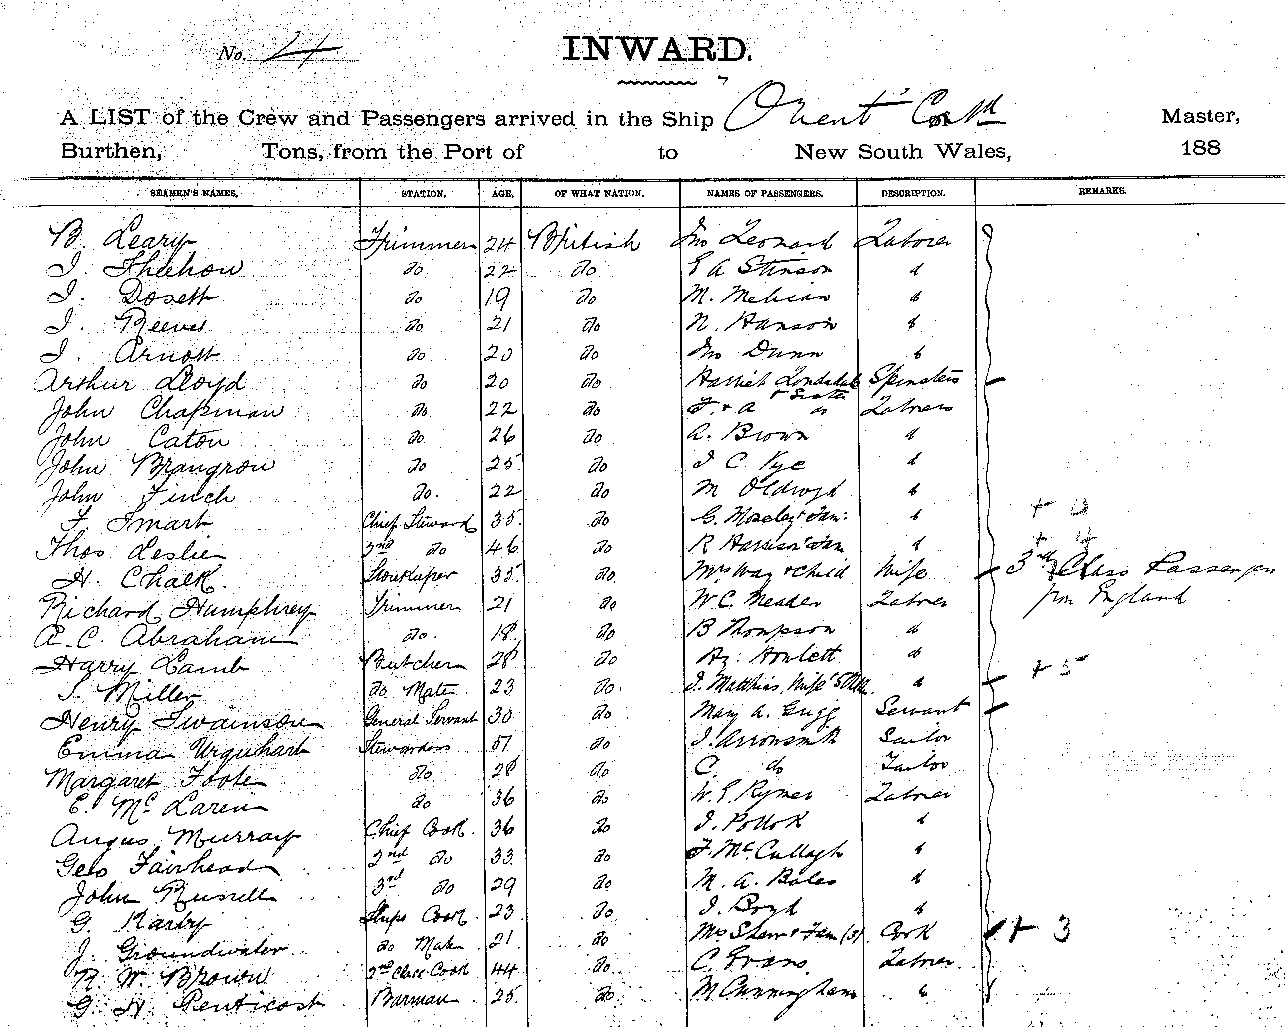 No. 4
INWARD.
A LIST of the Crew and Passengers arrived in the Ship Orient Master,
Burthen, Tons, from the Port of to New South Wales, 188
SEAMEN'S NAMES. STATION. AGE. OF WHAT NATION. NAMES OF PASSENGERS. DESCRIPTION. REMARKS.
B. Leary Trimmer 24 British Jno Leonard Laborer
J. Sheehow do 22 do E A Stinson "
J. Dosett do 19 do M. "
J. Reeves do 21 do N. Hanson "
J. Arnott do 20 do Jno Dunn "
Arthur Lloyd do 20 do Harriet Londsdale Spinsters
+ Sister
John Chapman do 22 do F. + A do Laborers
John Caton do 26 do A. Brown "
John Brangrow do 25 do J C Pye "
John Finch do. 22 do M "
F. Smart Chief Steward 35 do G. Moseley + Fam: " +
Thos Leslie 2nd do 46 do R Harrison + Fam " + 4
H. Chalk Storekeeper 35 do Mrs Way + Child Wife 3rd Class Passenger
from England
Richard Humphrey Trimmer 21 do W C. Meader Laborer
A. C. Abraham do. 18 do B Thompson "
Harry Lamb Butcher 28 do Hy. Howlett "
J. Miller do Mate 23 do. J. Matthias, Wife " + 5
Henry Swainson General Servant 30 do Mary A. Gregg Servant
Emma Urquhart Stewardess 51 do J. Arrowsmith Sailor
Margaret Foote do 28 do C. do Tailor
E. McLaren do 36 do W. E. Rymer Laborer
Angus Murray Chief Cook 36 do J. Pollok "
Geo Fairhead 2nd do 33 do F. McCullagh "
John Russell 3rd do 29 do M. A. Bales "
G. Ships Cook 23 do J. Boyd "
J. Groundwater do Mate 21 do Mrs Shaw + Fam (3) Cook + 3
R. W. Brown 2nd Class Cook 44 do C. Evans Laborer
G. H. Penticost Barman 25 do M Cunningham "